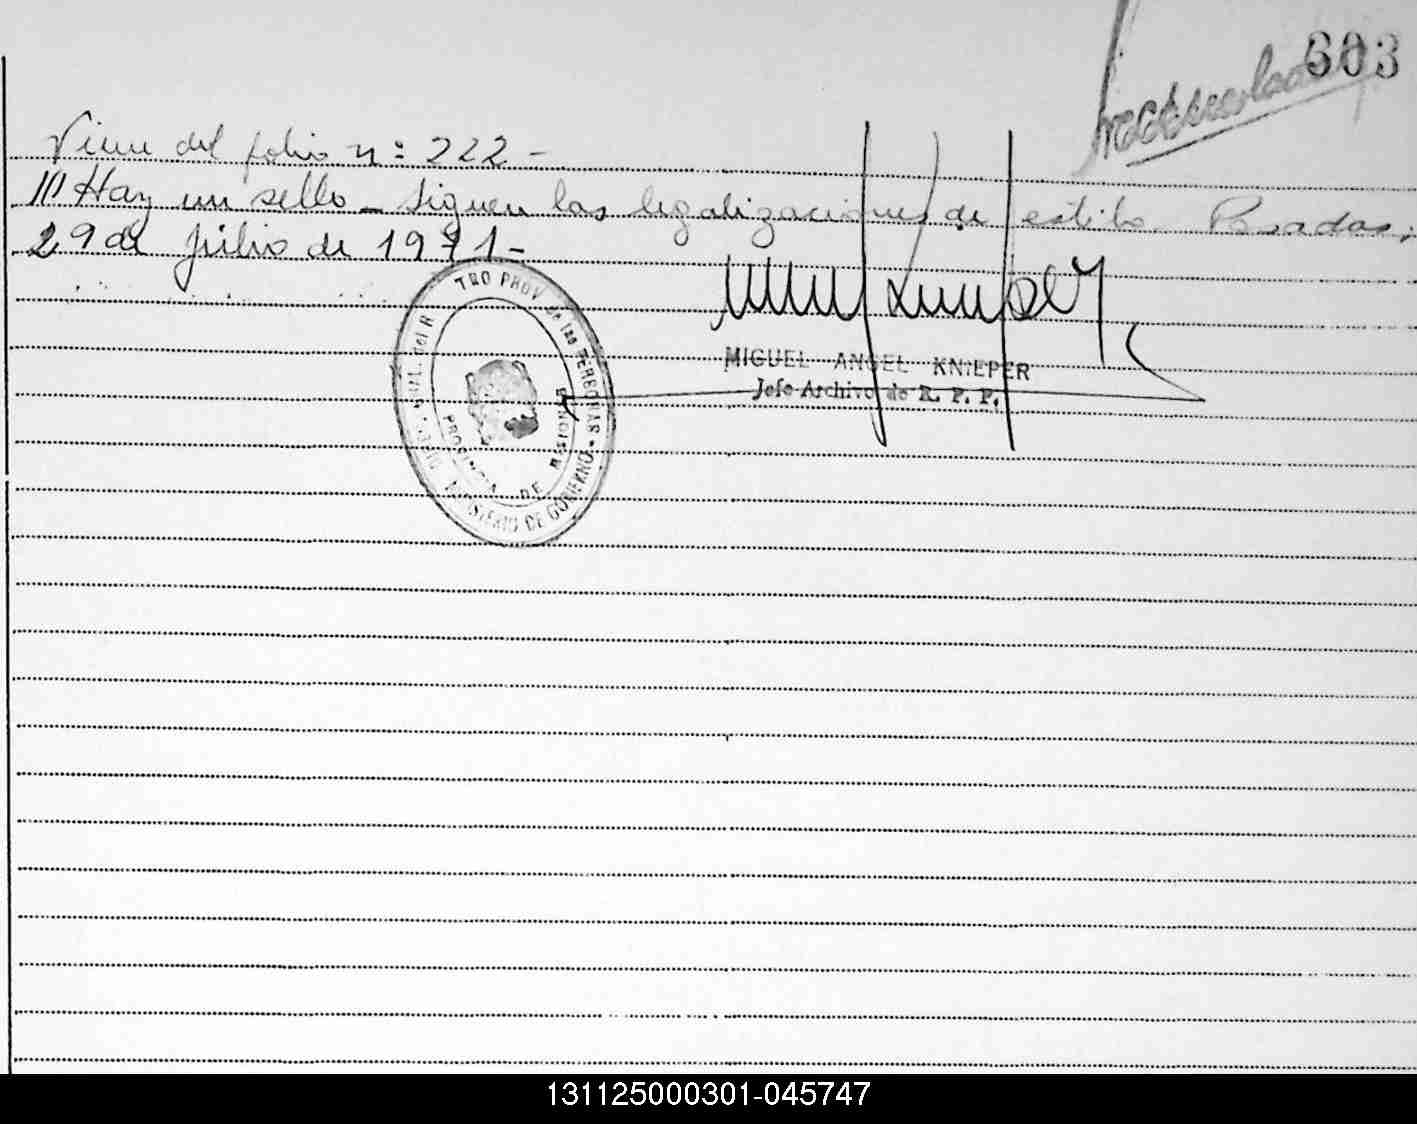 603
Viene del folio nº 222-
/// Hay un sello - Siguen las legalizaciones de estilo. Posadas,
29 de Julio de 1971-
MIGUEL ANGEL KNIEPER
Jefe Archivo de R. P. P.
TRO PROV de las PERSONAS - MINISTERIO DE GOBIERNO - GRAL. del R
PROVINCIA DE MISIONES
131125000301-045747